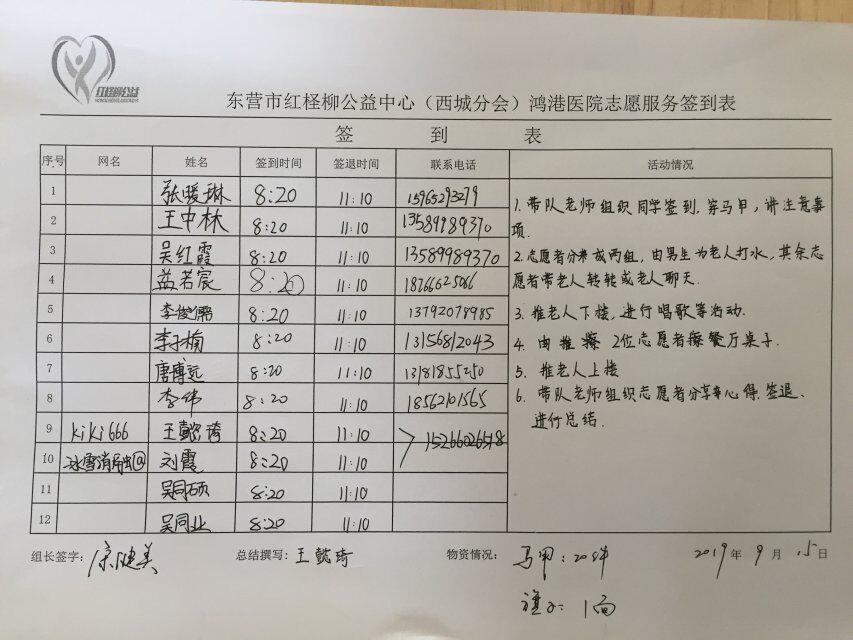 红柽柳公益
东营市红柽柳公益中心（西城分会）鸿港医院志愿服务签到表
签 到 表
序号 网名 姓名 签到时间 签退时间 联系电话 活动情况
1 张暖琳 8:20 11:10 15965293279
2 王中林 8:20 11:10 13589989370
3 吴红霞 8:20 11:10 13589989370
4 益若宸 8:20 11:10 18766625066
5 李俊儒 8:20 11:10 13792078985
6 李子楠 8:20 11:10 13156812043
7 唐博远 8:20 11:10 13181855250
8 李伟 8:20 11:10 18562101565
9 kiki666 王懿琦 8:20 11:10 15266026518
10 刘霞 8:20 11:10
11 吴同硕 8:20 11:10
12 吴同业 8:20 11:10
1. 带队老师组织同学签到，穿马甲，讲注意事
项.
2.志愿者分成两组，由男生为老人打水，其余志
愿者带老人转转或老人聊天.
3. 推老人下楼，进行唱歌等活动.
4. 由 2位志愿者擦餐厅桌子.
5. 推老人上楼
6. 带队老师组织志愿者分享心得.签退、
进行总结.
组长签字： 健美 总结撰写：王懿琦 物资情况： 马甲：20件 2019年 9月 15日
旗子：1面